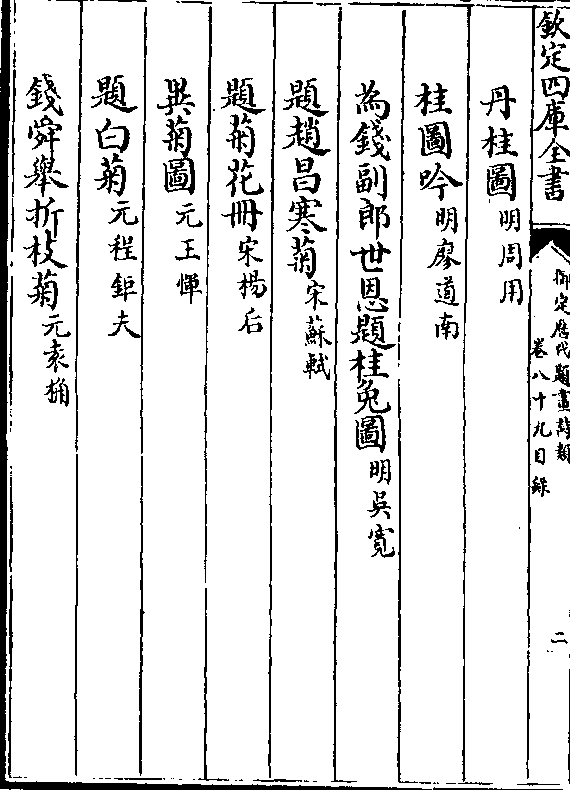 欽定四庫全書
御定歷代題畫詩類
卷八十九目録
二
丹桂圖明周用
桂圖吟明廖道南
為錢副郎世恩題桂兔圖明吳寛
題趙昌寒菊宋蘇軾
題菊花冊宋楊后
異菊圖元王惲
題白菊元程鉅夫
錢舜舉折枝菊元袁桷